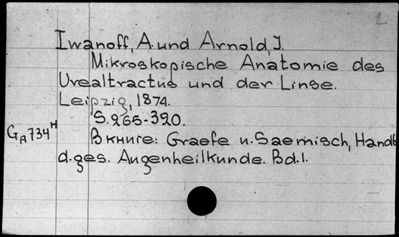 2
Iwanoff, A. und Arnold, J.
Mikroskopische Anatomie des
Urealtractus und der Linse.
Leipzig, 1874.
S. 265-320.
GA734H
В книге: Graefe u. Saemisch, Handb
d. ges. Augenheilkunde. Bd. 1.